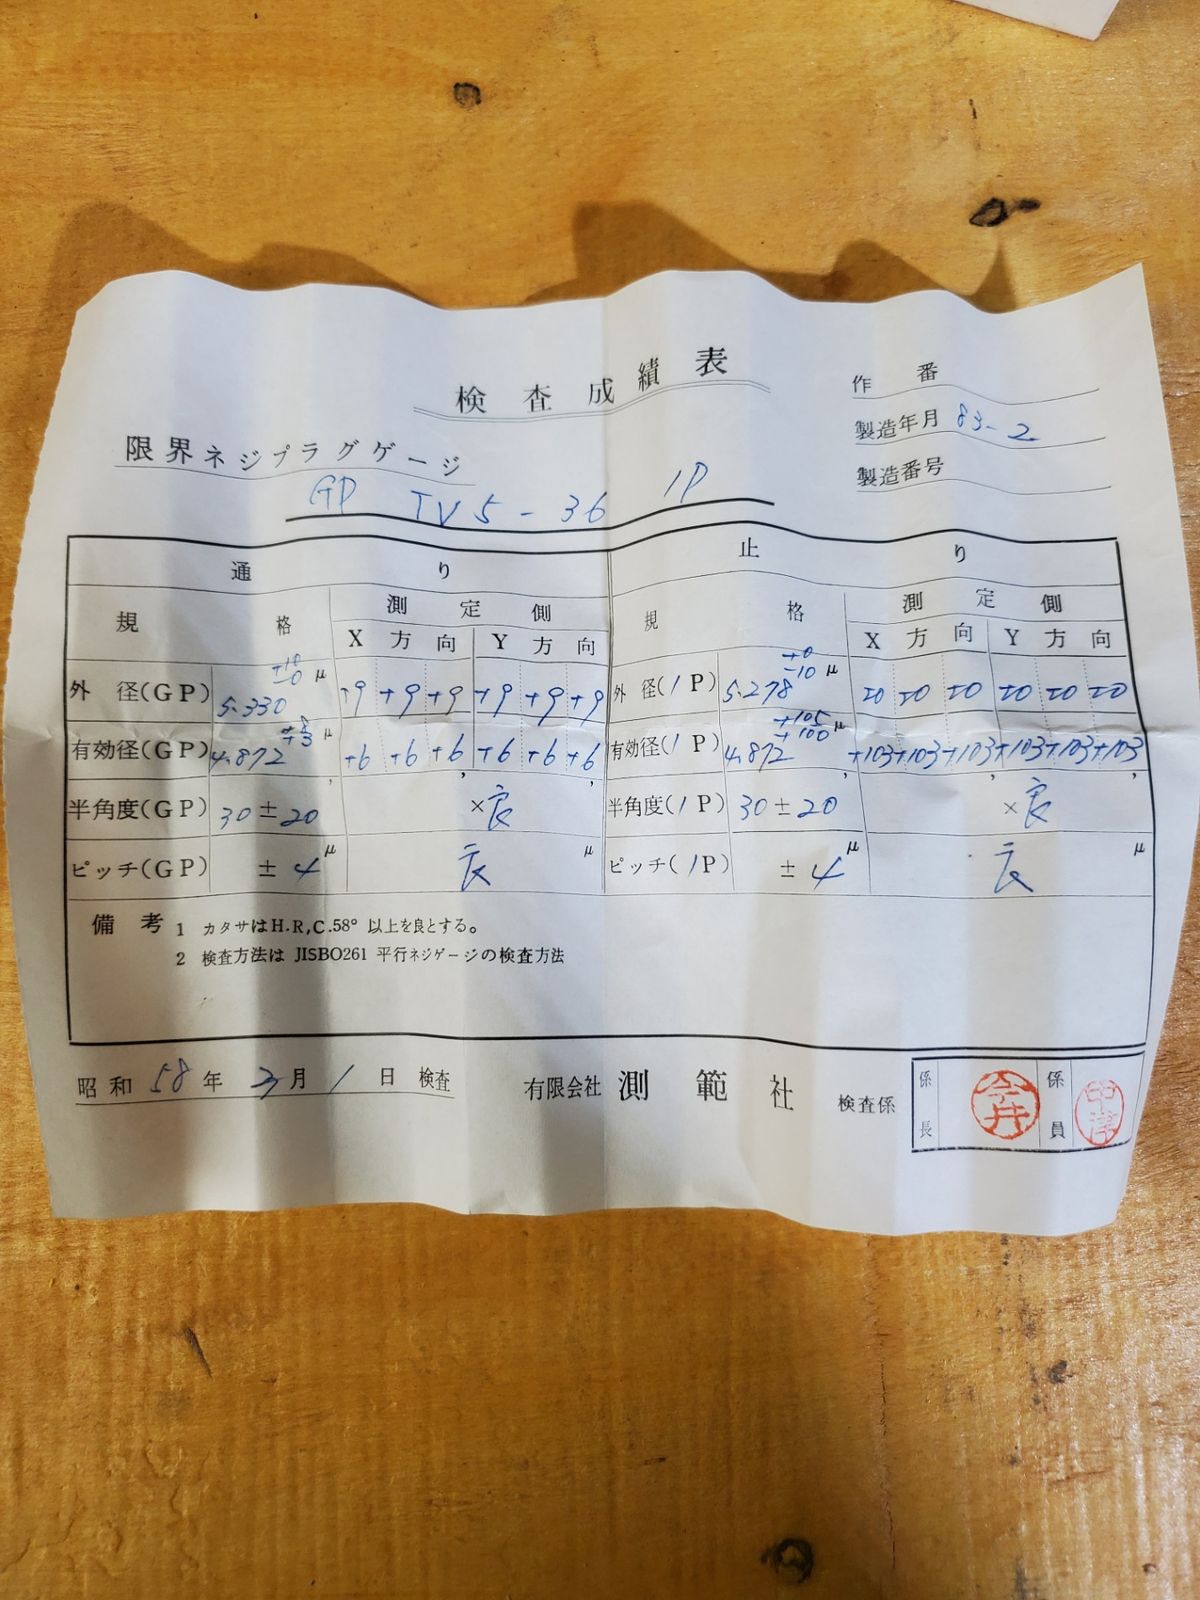 検査成績表
作番
製造年月 83-2
製造番号
限界ネジプラグゲージ
GP TV5-36 IP
通り 止り
規格 測定側 規格 測定側
X方向 Y方向 X方向 Y方向
外径(GP) 5.330 +10 -0 μ +9 +9 +9 +9 +9 +9 外径(IP) 5.278 +0 -10 μ ±0 ±0 ±0 ±0 ±0 ±0
有効径(GP) 4.872 +8 +3 μ +6 +6 +6 +6 +6 +6 有効径(IP) 4.872 +105 +100 μ +103 +103 +103 +103 +103 +103
半角度(GP) 30±20' ×良 ' 半角度(IP) 30±20 ' ×良 '
ピッチ(GP) ±4 μ 良 μ ピッチ(IP) ±4 μ 良 μ
備考 1 カタサはH.R,C.58° 以上を良とする。
2 検査方法は JISBO261 平行ネジゲージの検査方法
昭和58年3月1日 検査 有限会社 測範社 検査係 係長 今井 係員 中津